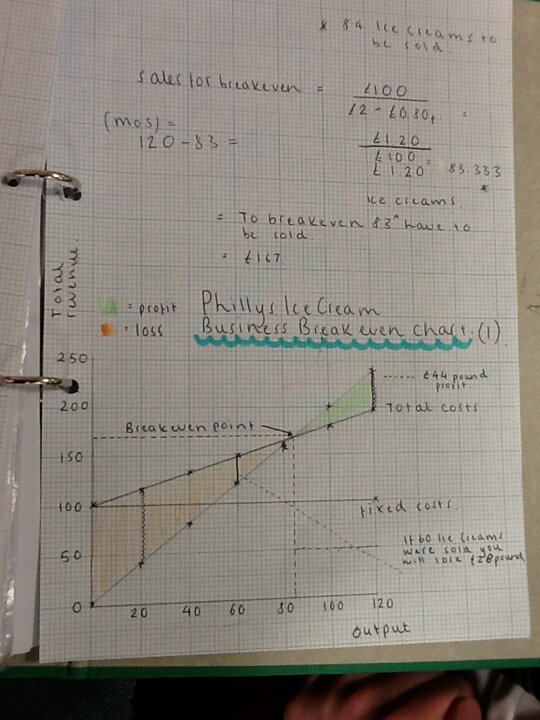 * 84 Ice creams to
be sold.
Sales for breakeven = £100
£2 - £0.80p =
(mos) =
120 - 83 =
£1.20
£100 = 83.333
£1.20 *
Ice creams.
= To breakeven 83^ have to
be sold.
= £167
Total
revenue.
= profit
= loss
Phillys Ice Cream
Business Breakeven Chart. (1).
250
200
150
100
50
0
20 40 60 80 100 120
£44 pound
profit
Total costs
Breakeven point
fixed costs.
If 60 Ice Creams
were sold you
will lose £28 pound
Output